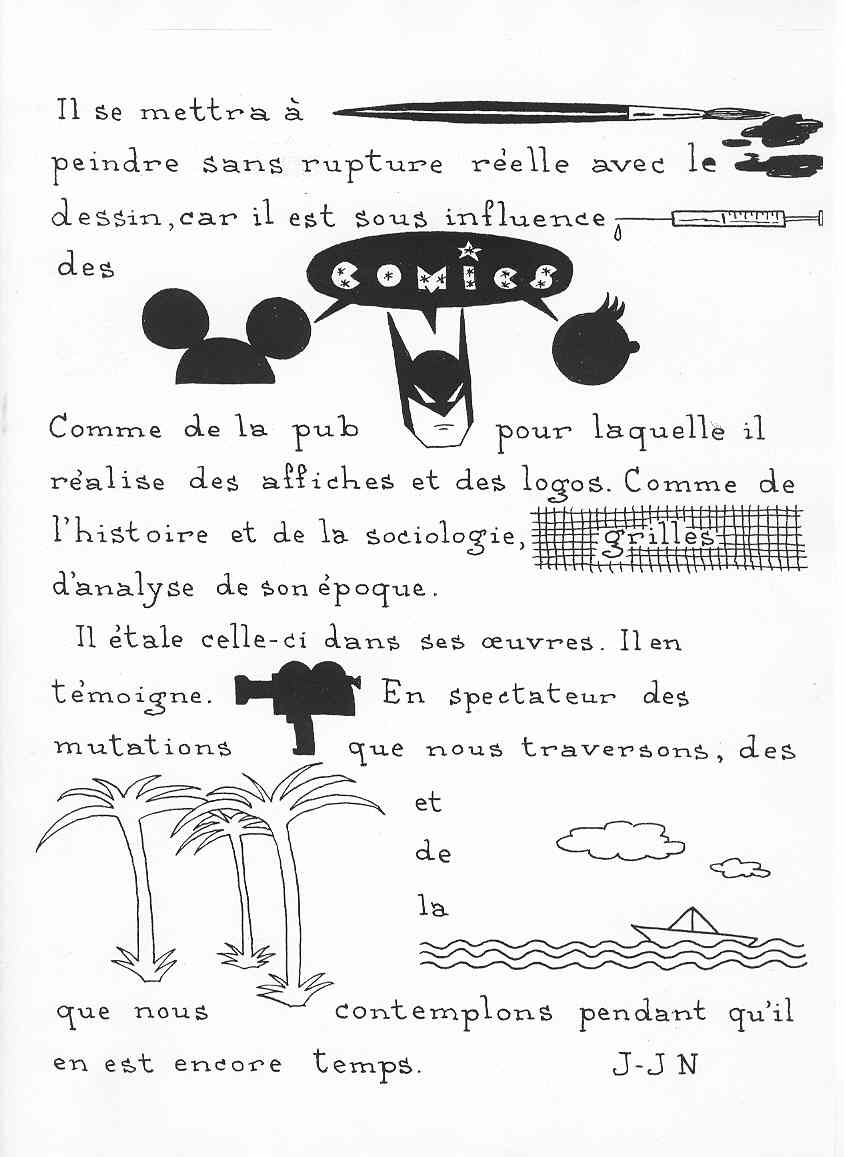 Il se mettra à
peindre sans rupture réelle avec le
dessin, car il est sous influence
des
COMICS
Comme de la pub pour laquelle il
réalise des affiches et des logos. Comme de
l'histoire et de la sociologie, grilles
d'analyse de son époque.
Il étale celle-ci dans ses œuvres. Il en
témoigne. En spectateur des
mutations que nous traversons, des
et
de
la
que nous contemplons pendant qu'il
en est encore temps. J-J N